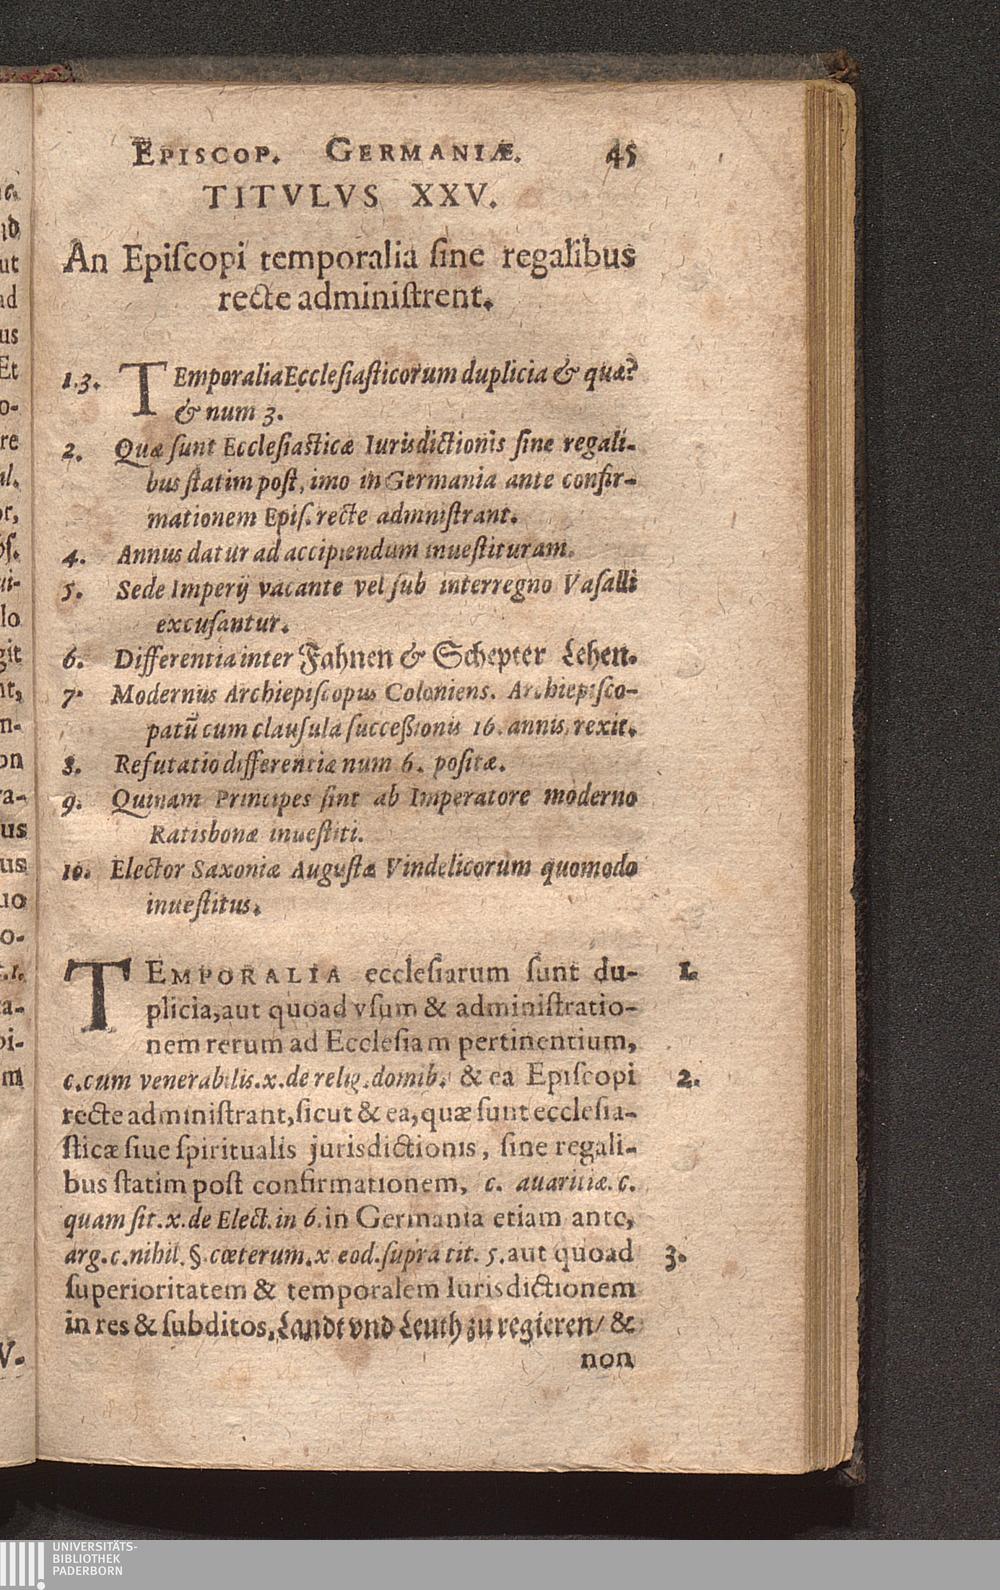 EPISCOP. GERMANIÆ. 45
TITVLVS XXV.
An Epiſcopi temporalia ſine regalibus
recte adminiſtrent.
1.3. TEmporalia Eccleſiaſticorum duplicia & quæ?
& num 3.
2. Quæ ſunt Eccleſiaſticæ Iurisdictionis ſine regali-
bus ſtatim poſt, imo in Germania ante confir-
mationem Epiſ. recte admniſtrant.
4. Annus datur ad accipiendum inueſtituram.
5. Sede Imperij vacante vel ſub interregno Vaſalli
excuſantur.
6. Differentia inter Fahnen & Schepter Lehen.
7. Modernus Archiepiſcopus Coloniens. Archiepiſco-
patū cum clauſula ſucceßionis 16. annis, rexit.
8. Refutatio differentiæ num 6. poſitæ.
9. Quinam Principes ſint ab Imperatore moderno
Ratisbonæ inueſtiti.
10. Elector Saxoniæ Auguſtæ Vindelicorum quomodo
inueſtitus.
TEMPORALIA eccleſiarum ſunt du- 1.
plicia, aut quoad vſum & adminiſtratio-
nem rerum ad Eccleſiam pertinentium,
c. cum venerabilis. x. de relig. domib. & ea Epiſcopi 2.
recte adminiſtrant, ſicut & ea, quæ ſunt eccleſia-
ſticæ ſiue ſpiritualis jurisdictionis, ſine regali-
bus ſtatim poſt confirmationem, c. auaritiæ. c.
quam ſit. x. de Elect. in 6. in Germania etiam ante,
arg. c. nihil. § cœterum. x eod. ſupra tit. 5. aut quoad 3.
ſuperioritatem & temporalem Iurisdictionem
in res & ſubditos, Landt vnd Leuth zu regieren/ &
non
UNIVERSITÄTS-
BIBLIOTHEK
PADERBORN